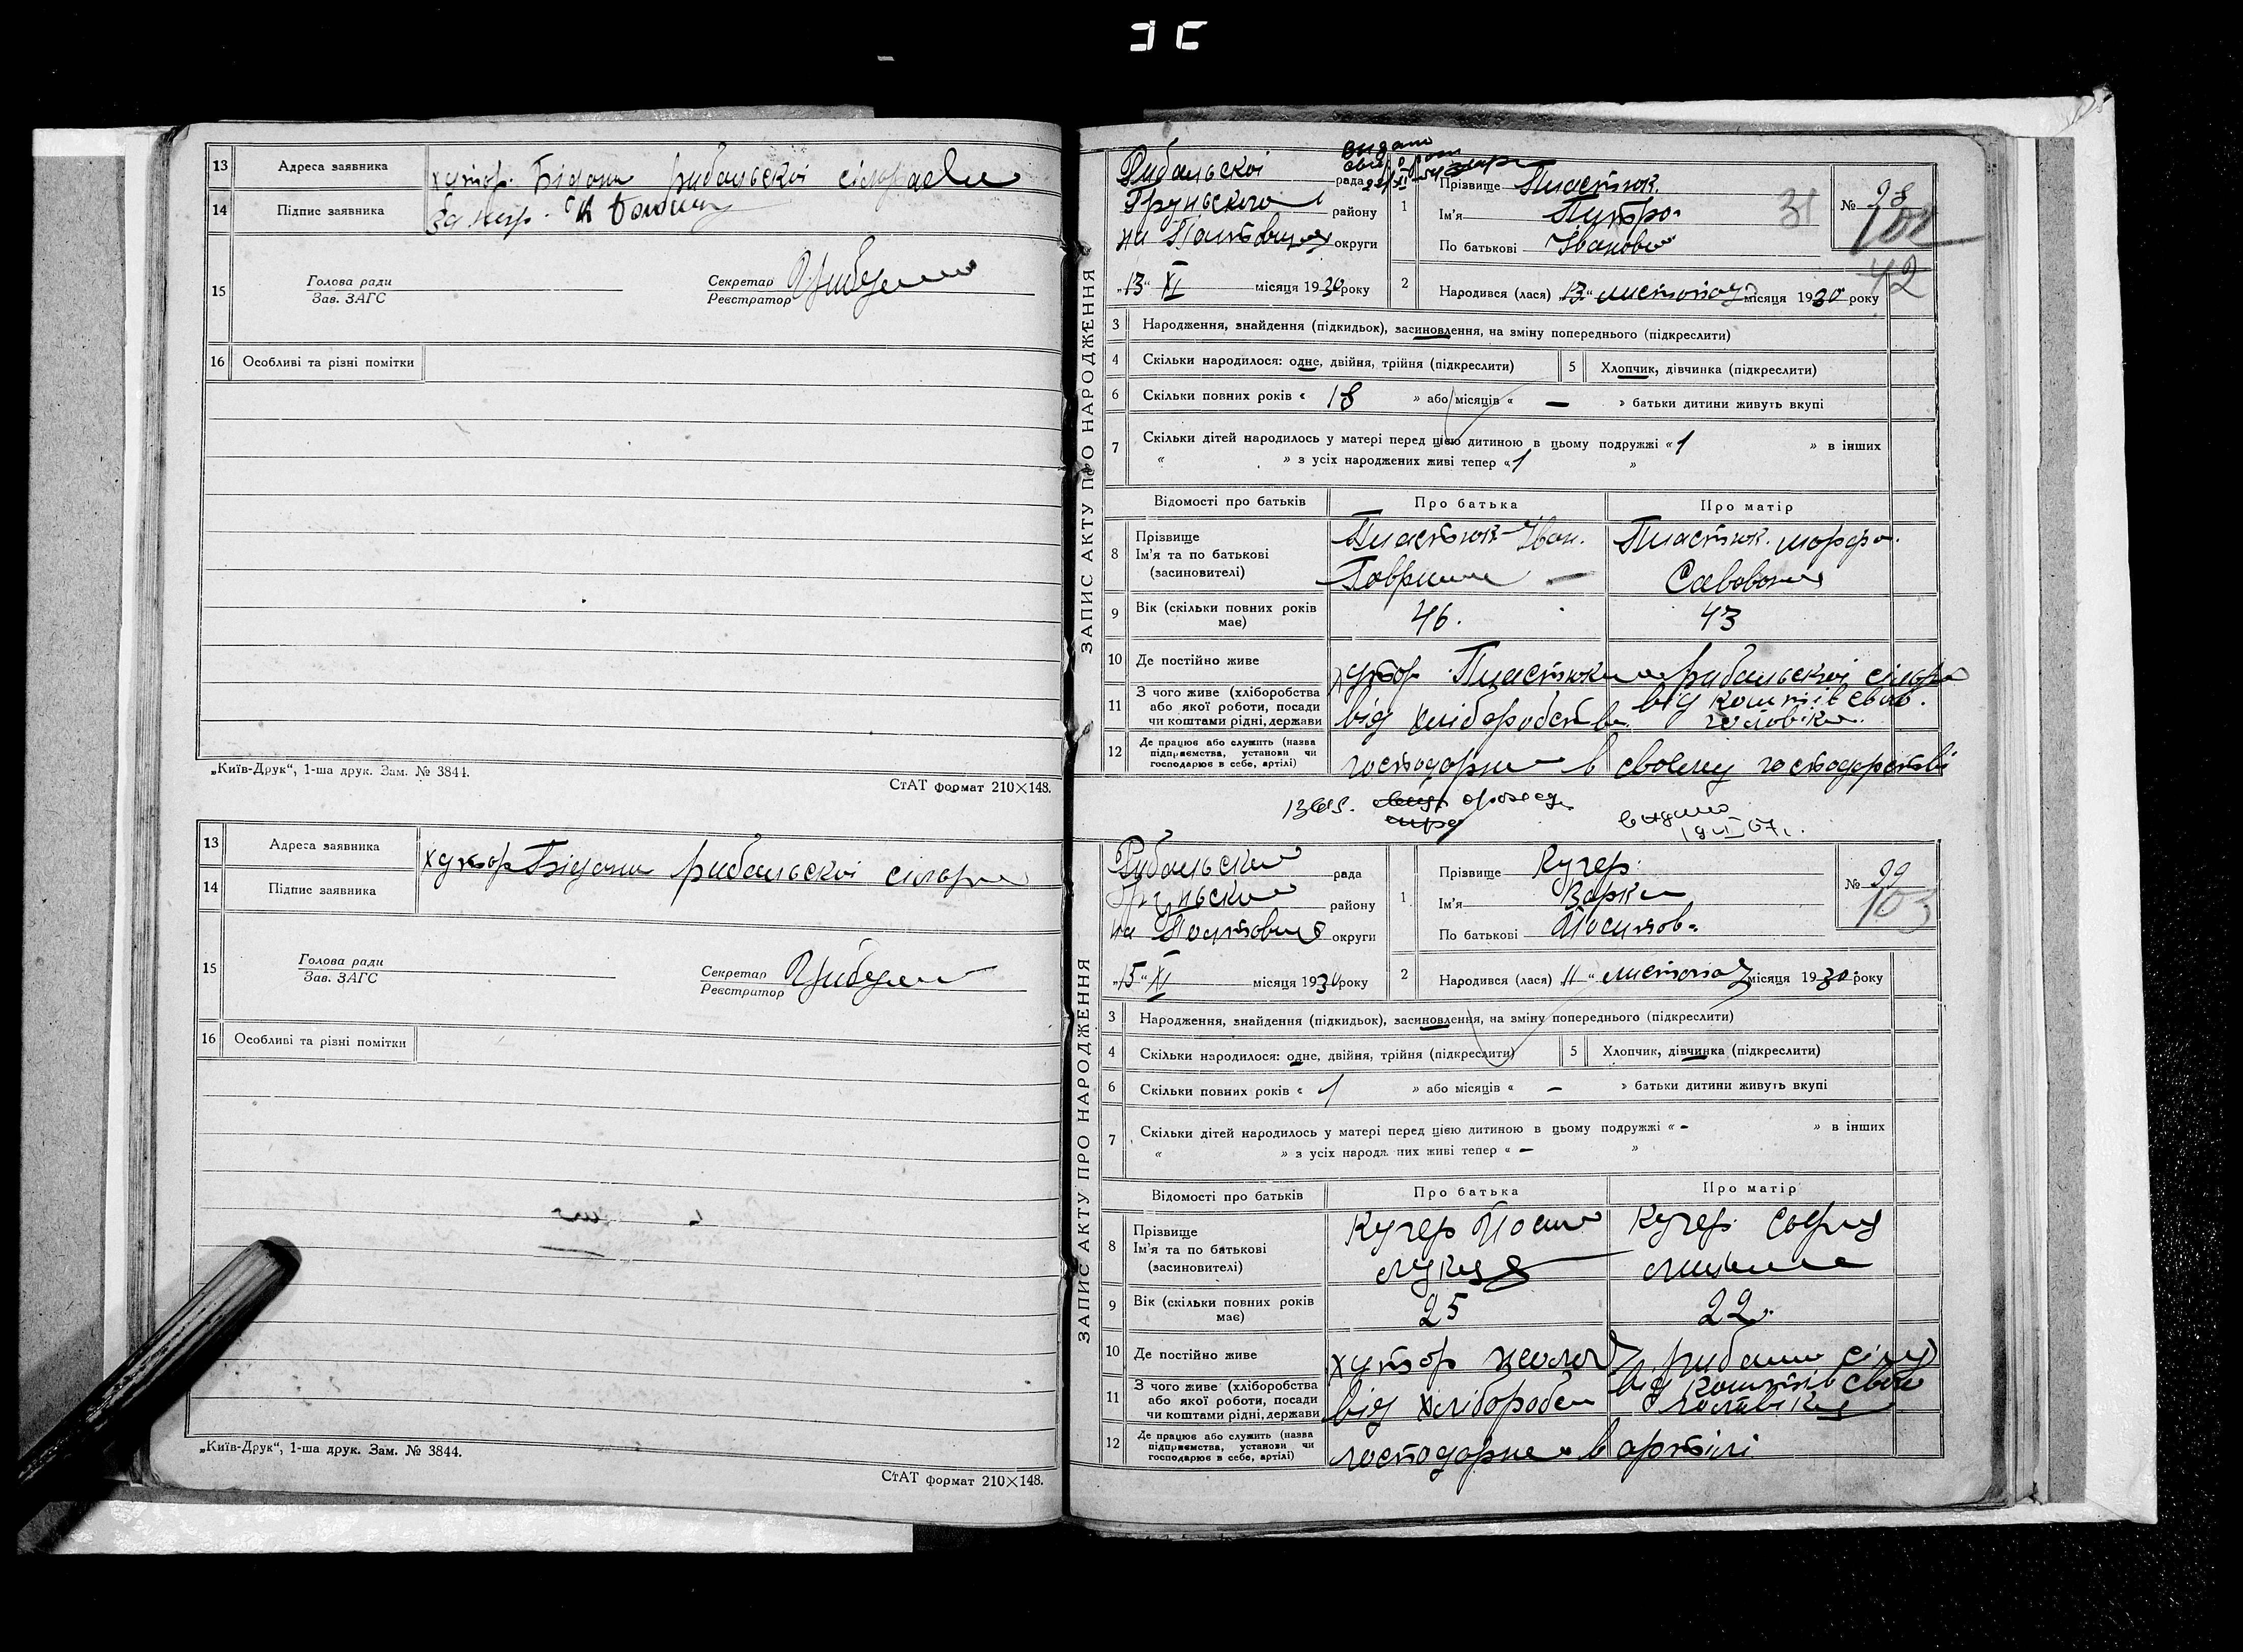 13 Адреса заявника хутор. Бідани рибальскої сілради
14 Підпис заявника за негр.
15 Голова ради
Зав. ЗАГС
Секретар
Реєстратор
16 Особливі та різні помітки
„Київ-Друк“, 1-ша друк. Зам. № 3844.
СтАТ формат 210×148.
13 Адреса заявника хутор Бідани рибальскої сілради
14 Підпис заявника
15 Голова ради
Зав. ЗАГС
Секретар
Реєстратор
16 Особливі та різні помітки
„Київ-Друк“, 1-ша друк. Зам. № 3844.
СтАТ формат 210×148.
ЗАПИС АКТУ ПРО НАРОДЖЕННЯ
видано
Рибальскої рада
Груньского району
на Полтавщин округи
„13“ XI місяця 1930 року
1 Прізвище Пластюк.
Ім'я Питро
По батькові Іванови
31
№ 98
102
42
2 Народився (лася) „13“ листопад місяця 1930 року
3 Народження, знайдення (підкидьок), засиновлення, на зміну попереднього (підкреслити)
4 Скільки народилося: одне, двійня, трійня (підкреслити)
5 Хлопчик, дівчинка (підкреслити)
6 Скільки повних років « 18 » або місяців « — » батьки дитини живуть вкупі
7 Скільки дітей народилось у матері перед цією дитиною в цьому подружжі « 1 » в інших
« » з усіх народжених живі тепер « 1 »
Відомості про батьків Про батька Про матір
8 Прізвище
Ім'я та по батькові
(засиновителі)
Пластюк Іван.
Гаврил —
Пластюк. марфа.
Савовна
9 Вік (скільки повних років має) 46. 43
10 Де постійно живе хутор Пластюки рибальскої сілради
11 З чого живе (хліборобства
або якої роботи, посади
чи коштами рідні, держави
від хліборобств
від коштів свог.
чоловіка.
12 Де працює або служить (назва
підприємства, установи чи
господарює в себе, артілі)
господарює в своему господарстві
видано
ЗАПИС АКТУ ПРО НАРОДЖЕННЯ
Рибальски рада
Груньски району
на Полтавщ округи
„15“ XI місяця 1930 року
1 Прізвище Кучер.
Ім'я Варка
По батькові Йосипов.
№ 99
103
2 Народився (лася) „11“ листопад місяця 1930 року
3 Народження, знайдення (підкидьок), засиновлення, на зміну попереднього (підкреслити)
4 Скільки народилося: одне, двійня, трійня (підкреслити)
5 Хлопчик, дівчинка (підкреслити)
6 Скільки повних років « 1 » або місяців « — » батьки дитини живуть вкупі
7 Скільки дітей народилось у матері перед цією дитиною в цьому подружжі « - » в інших
« » з усіх народж них живі тепер « — »
Відомості про батьків Про батька Про матір
8 Прізвище
Ім'я та по батькові
(засиновителі)
Кучер Йосип
Кучер Софія
9 Вік (скільки повних років має) 25 22
10 Де постійно живе хутор
11 З чого живе (хліборобства
або якої роботи, посади
чи коштами рідні, держави
від хліборобс
від коштів свог
чоловіка
12 Де працює або служить (назва
підприємства, установи чи
господарює в себе, артілі)
господарює в артілі